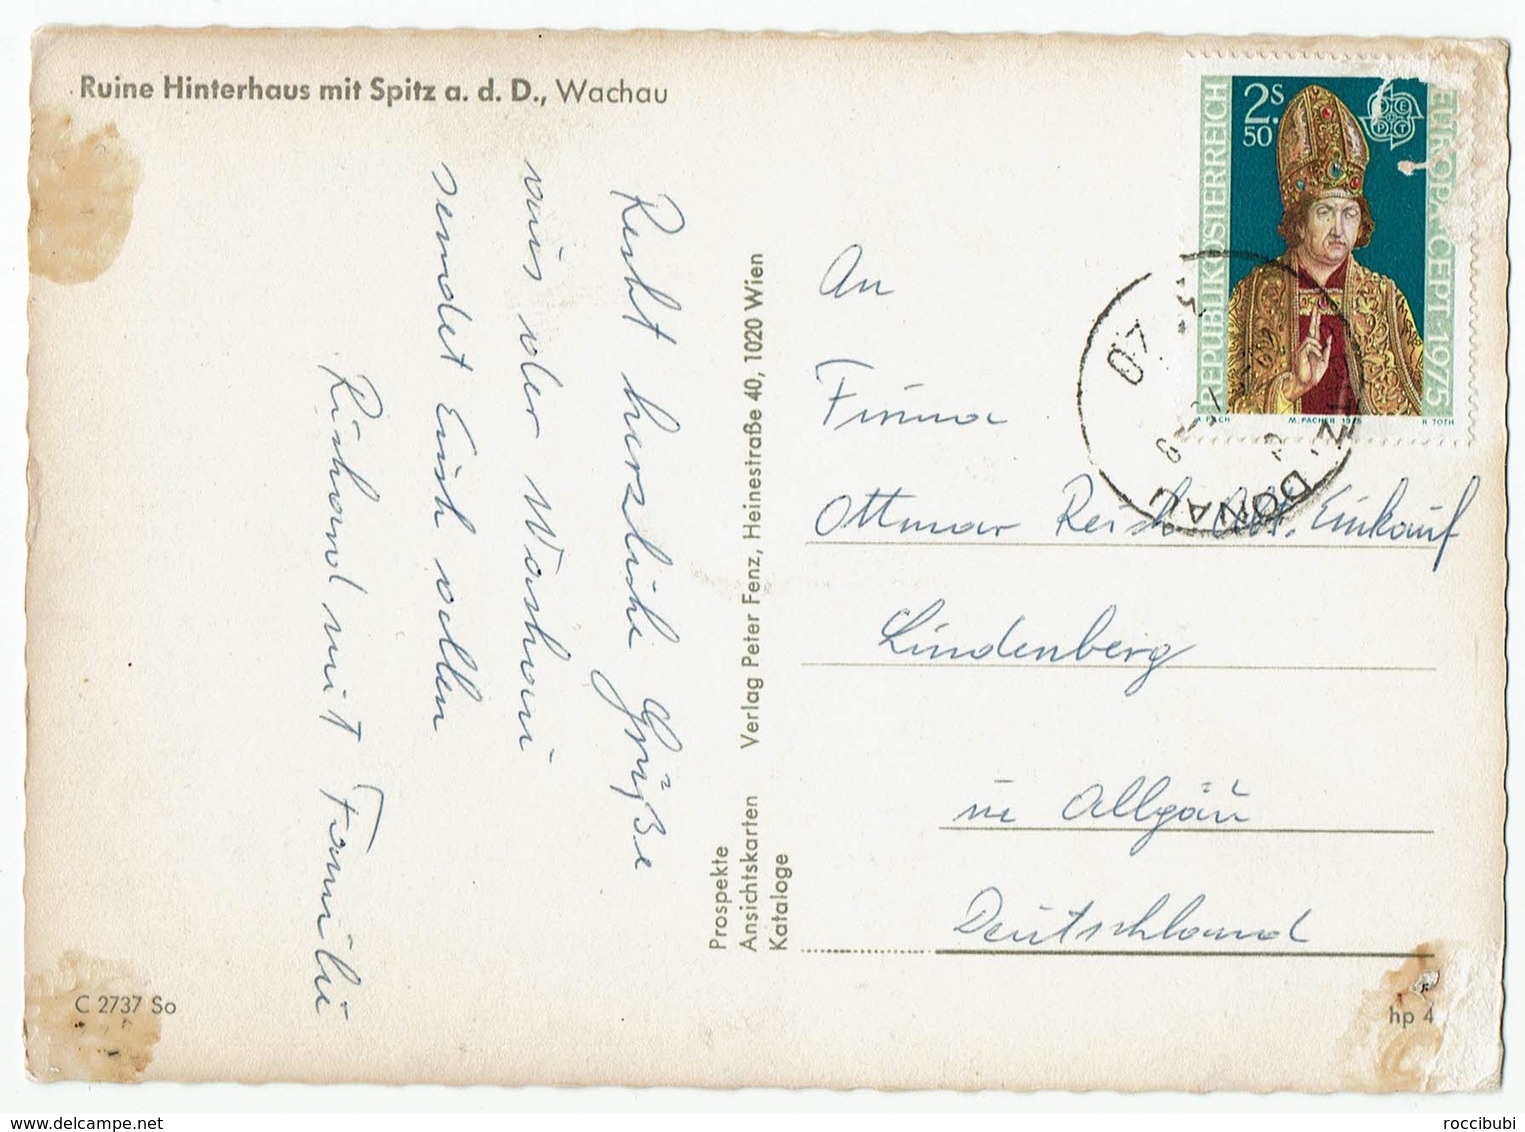 Ruine Hinterhaus mit Spitz a. d. D., Wachau
Recht herzliche Grüße
aus der Wachau
sendet Euch allen
Richard mit Familie
C 2737 So
Prospekte
Ansichtskarten
Kataloge
Verlag Peter Fenz, Heinestraße 40, 1020 Wien
REPUBLIK ÖSTERREICH
2.S
50
CEPT
EUROPA CEPT-1975
M. PACHER 1975
R TOTH
DONAU
An
Firma
Ottmar Reich Abt. Einkauf
Lindenberg
im Allgäu
Deutschland
hp 4
roccibubi